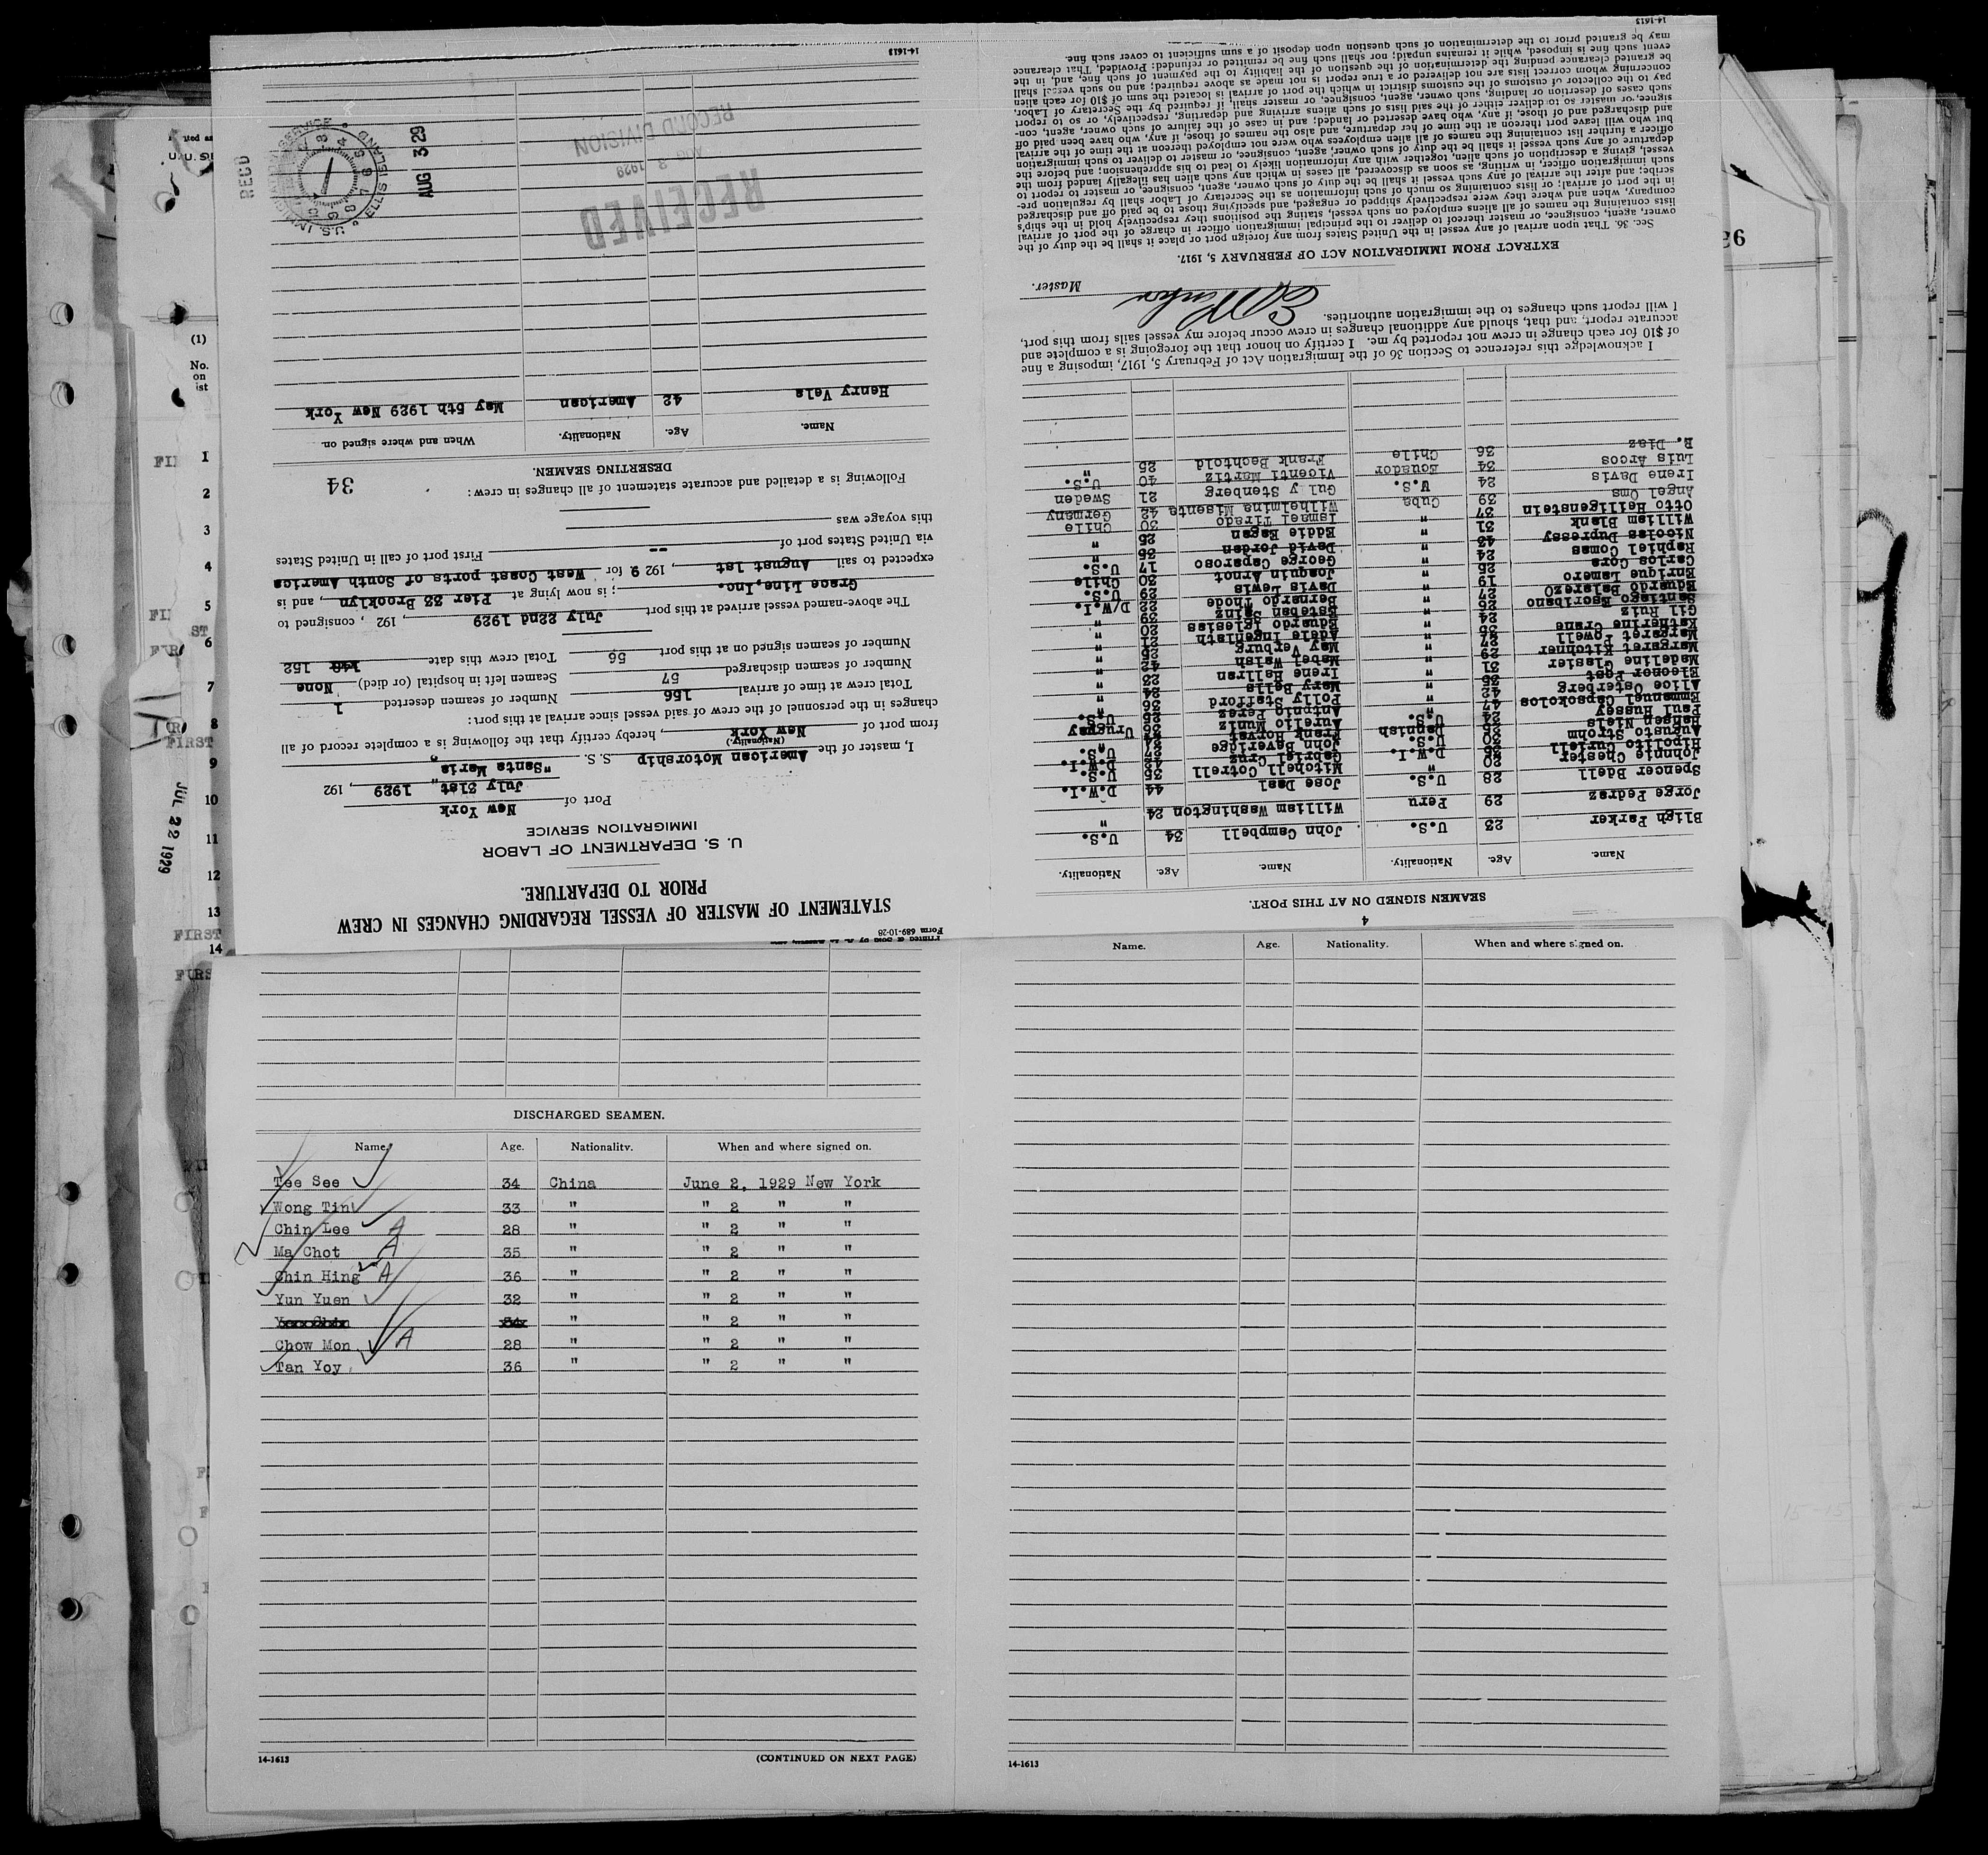 Form 689-10-28
STATEMENT OF MASTER OF VESSEL REGARDING CHANGES IN CREW
PRIOR TO DEPARTURE.
U. S. DEPARTMENT OF LABOR
IMMIGRATION SERVICE
Port of New York
July 31st, 1929, 192
I, master of the American Motorship S. S. "Santa Maria"
(Nationality.)
from port of New York, hereby certify that the following is a complete record of all
changes in the personnel of the crew of said vessel since arrival at this port:
Total crew at time of arrival 156 Number of seamen deserted 1
Number of seamen discharged 57 Seamen left in hospital (or died) None
Number of seamen signed on at this port 56 Total crew this date 152
The above-named vessel arrived at this port July 22nd 1929, 192 , consigned to
Grace Line, Inc. ; is now lying at Pier 33 Brooklyn, and is
expected to sail August 1st, 192 9 for West Coast ports of South America
via United States port of -- First port of call in United States
this voyage was
Following is a detailed and accurate statement of all changes in crew:
34
DESERTING SEAMEN.
Name. Age. Nationality. When and where signed on.
Henry Vela 42 American May 5th 1929 New York
RECEIVED
AUG 3 1929
RECORD DIVISION
REC'D
AUG 3 29
U.S. IMMIGRATION SERVICE ELLIS ISLAND
14-1613
4
SEAMEN SIGNED ON AT THIS PORT.
Name. Age. Nationality. Name. Age. Nationality.
Bligh Parker 23 U.S. John Campbell 34 U.S.
Jorge Pedraz 29 Peru William Washington 24 "
Spencer Bdell 28 U.S. Jose Deal 44 D.W.I.
Johnnie Chester 20 " Mitchell Cotrell 35 U.S.
Hipolito Curiell D.W.I. Gabriel Cruz 42 D.W.I.
Augusto Strohm U.S. John Baveridge U.S.
Hansen Niels Danish Frank Horvat "
Paul Hussey 24 U.S. Aurelio Muniz Uruguay
Emmanuel Capsokolos 47 " Antonio Perez U.S.
Alice Osterberg 42 " Polly Stafford 36 "
Eleanor Post " Mary Bells "
Madeline Glasier 31 " Irene Hallran 23 "
Margaret Kitchner 29 " Mabel Walsh 42 "
Margaret Powell 27 " May Verburg 25 "
Katherine Crane " Adele Ingenlath 21 "
Gil Ruiz 24 " Eduardo Iglesias 20 "
Santiago Escribano 26 " Esteban Sainz "
Eduardo Balarezo 27 " Bernardo Thode 22 D/W.I.
Enrique Lamero 19 " Davis Lewis 29 U.S.
Carlos Cora 25 " Joaquin Arnot 30 Chile
Raphiel Comas 24 " George Caparoso 17 U.S.
Nicolas Dupressy 43 " David Jordan 36 "
William Blank 31 " Eddie Eagan 25 "
Otto Heiligenstein 37 " Ismael Tirado 30 Chile
Angel Oms 39 Cuba Wilhelmina Misente 42 Germany
Irene Davis 24 U.S. Gul y Stenberg 21 Sweden
Luis Arcos 34 Ecuador Vicenti Martiz 40 U.S.
R. Diaz 36 Chile Frank Bechtold 25 "
I acknowledge this reference to Section 36 of the Immigration Act of February 5, 1917, imposing a fine
of $10 for each change in crew not reported by me. I certify on honor that the foregoing is a complete and
accurate report, and that, should any additional changes in crew occur before my vessel sails from this port,
I will report such changes to the immigration authorities.
Master.
EXTRACT FROM IMMIGRATION ACT OF FEBRUARY 5, 1917.
Sec. 36. That upon arrival of any vessel in the United States from any foreign port or place it shall be the duty of the
owner, agent, consignee, or master thereof to deliver to the principal immigration officer in charge of the port of arrival
lists containing the names of all aliens employed on such vessel, stating the positions they respectively hold in the ship's
company, when and where they were respectively shipped or engaged, and specifying those to be paid off and discharged
in the port of arrival; or lists containing so much of such information as the Secretary of Labor shall by regulation pre-
scribe; and after the arrival of any such vessel it shall be the duty of such owner, agent, consignee, or master to report to
such immigration officer, in writing, as soon as discovered, all cases in which any such alien has illegally landed from the
vessel, giving a description of such alien, together with any information likely to lead to his apprehension; and before the
departure of any such vessel it shall be the duty of such owner, agent, consignee, or master to deliver to such immigration
officer a further list containing the names of all alien employees who were not employed thereon at the time of the arrival
but who will leave port thereon at the time of her departure, and also the names of those, if any, who have been paid off
and discharged and of those, if any, who have deserted or landed; and in case of the failure of such owner, agent, con-
signee, or master so to deliver either of the said lists of such aliens arriving and departing, respectively, or so to report
such cases of desertion or landing, such owner, agent, consignee, or master shall, if required by the Secretary of Labor,
pay to the collector of customs of the customs district in which the port of arrival is located the sum of $10 for each alien
concerning whom correct lists are not delivered or a true report is not made as above required; and no such vessel shall
be granted clearance pending the determination of the question of the liability to the payment of such fine, and, in the
event such fine is imposed, while it remains unpaid; nor shall such fine be remitted or refunded: Provided, That clearance
may be granted prior to the determination of such question upon deposit of a sum sufficient to cover such fine.
14-1613
DISCHARGED SEAMEN.
Name. Age. Nationality. When and where signed on.
Tee See 34 China June 2, 1929 New York
Wong Tin 33 " " 2 " "
Chin Lee A 28 " " 2 " "
Ma Chot A 35 " " 2 " "
Chin Hing A 36 " " 2 " "
Yun Yuen 32 " " 2 " "
" " 2 " "
Chow Mon A 28 " " 2 " "
Tan Yoy 36 " " 2 " "
14-1613 (CONTINUED ON NEXT PAGE)
Name. Age. Nationality. When and where signed on.
14-1613
(1)
No.
on
1
2
3
4
5
6
7
8
9
10
11
12
13
14
FIRST
FIRST
JUL 22 1929
26